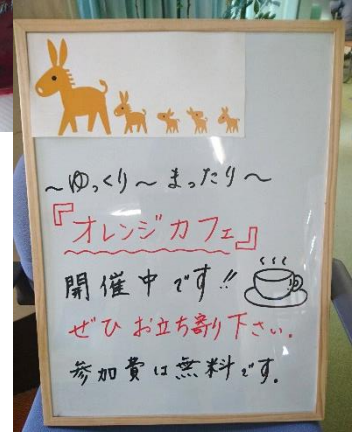 ～ゆっくり～まったり～
『オレンジカフェ』
開催中です!!
ぜひお立ち寄り下さい.
参加費は無料です.